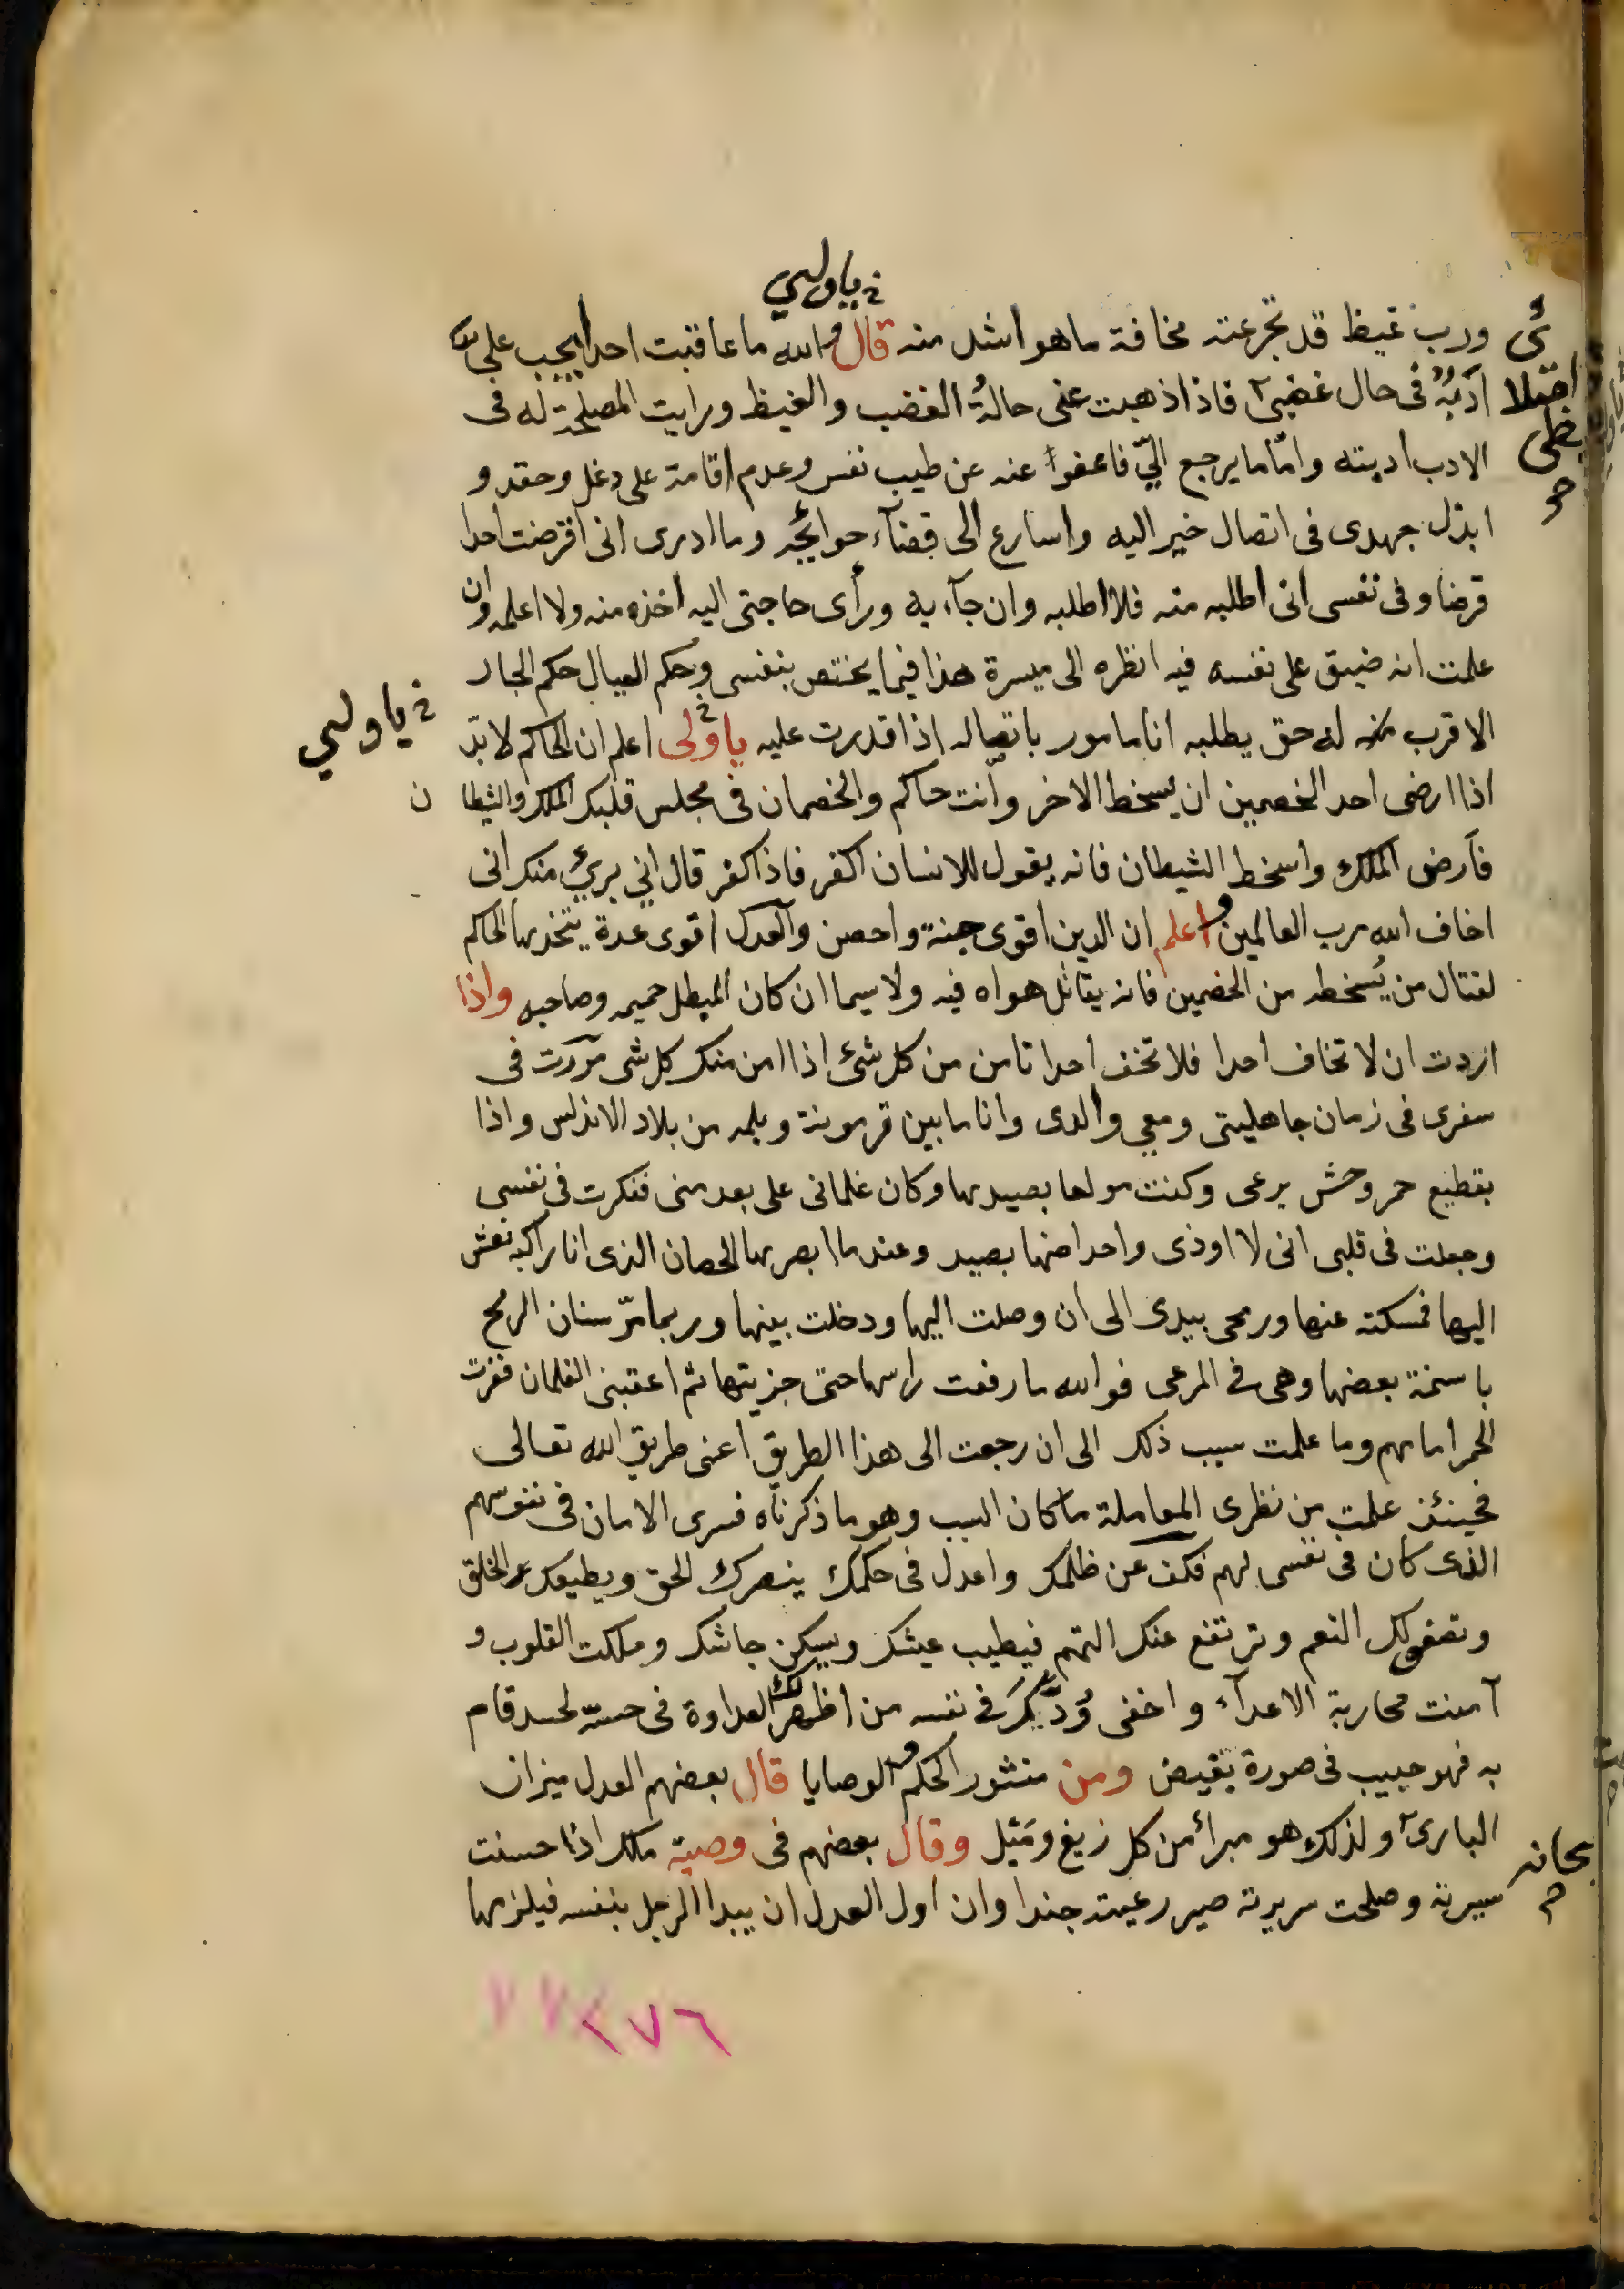 ن ياولي
ورب غيظ قد تجرعته مخافة ما هو اشد منه قال والله ما عاقبت احدا يجب علي
ادبه في حال غضبي فاذا ذهبت عني حالة الغضب والغيظ ورايت المصلحة له في
الادب ادبته واما ما يرجع الي فاعفوا عنه عن طيب نفس وعدم اقامة على دغل وحقد و
ابذل جهدى في اتصال خير اليه واسارع الى قضآء حوائجه وما ادرى انى اقرضت احدا
قرضا وفى نفسى انى اطلبه منه فلا اطلبه وان جآء به ورأى حاجتى اليه اخذه منه ولا اعلمه وان
علمت انه ضيق على نفسه فيه انظره الى ميسرة هذا فيما يختص بنفسى وحكم العيال حكم الجار
الاقرب له حق يطلبه انا مامور باتصاله اذا قدرت عليه ياولى اعلم ان الحاكم لا بدّ
ن ياولي
اذا ارضى احد الخصمين ان يسخط الاخر وأنت حاكم والخصمان فى مجلس قلبك الملك والشيطان
فارض الملك واسخط الشيطان فانه يقول للانسان اكفر فاذا كفر قال اني بريئ منك انى
اخاف الله رب العالمين واعلم ان الدين اقوى جنة واحصن والعدل اقوى عدة يتخذها الحاكم
لقتال من يُسخطه من الخصمين فانه يقاتل هواه فيه ولا سيما ان كان المبطل حميمه وصاحبه واذا
اردت ان لا تخاف احدا فلا تخف احدا تامن من كل شئ اذا امن منك كل شى مررت فى
سفرى فى زمان جاهليتى ومعي والدى وانا ما بين قرمونة وبلمه من بلاد الاندلس واذا
بقطيع حمر وحش يرعى وكنت مولعا بصيدها وكان غلمانى على بعد منى ففكرت فى نفسى
وجعلت فى قلبى انى لا اوذى واحدا منها بصيد وعندما ابصرها الحصان الذى انا راكبه نفش
اليها فمسكته عنها ورمحى بيدى الى ان وصلت اليها ودخلت بينها وربما مرّ سنان الرمح
باسنمة بعضها وهى في المرعى فوالله ما رفعت راسها حتى جزيتها ثم اعقبنى الغلمان ففرت
الحمر امامهم وما علمت سبب ذلك الى ان رجعت الى هذا الطريق اعنى طريق الله تعالى
فحينئذ علمت من نظرى المعاملة ما كان السبب وهو ما ذكرناه فسرى الامان فى نفوسهم
الذى كان فى نفسى لهم فكف عن ظلمك واعدل فى حكمك ينصرك الحق ويطيعك الخلق
وتصفو لك النعم وترتفع عنك التهم فيطيب عيشك ويسكن جاشك وملكت القلوب و
آمنت محاربة الاعدآء واخفى وُدّك في نفسه من اظهر لك العداوة فى حسه لحسد قام
به فهو حبيب فى صورة بغيض ومن منثور الحكم والوصايا قال بعضهم العدل ميزان
البارئ ولذلك هو مبرأ من كل زيغ وميل وقال بعضهم فى وصية ملك اذا حسنت
سيرته وصلحت سريرته صير رعيته جندا وان اول العدل ان يبدا الرجل بنفسه فيلزمها
٢٧٦